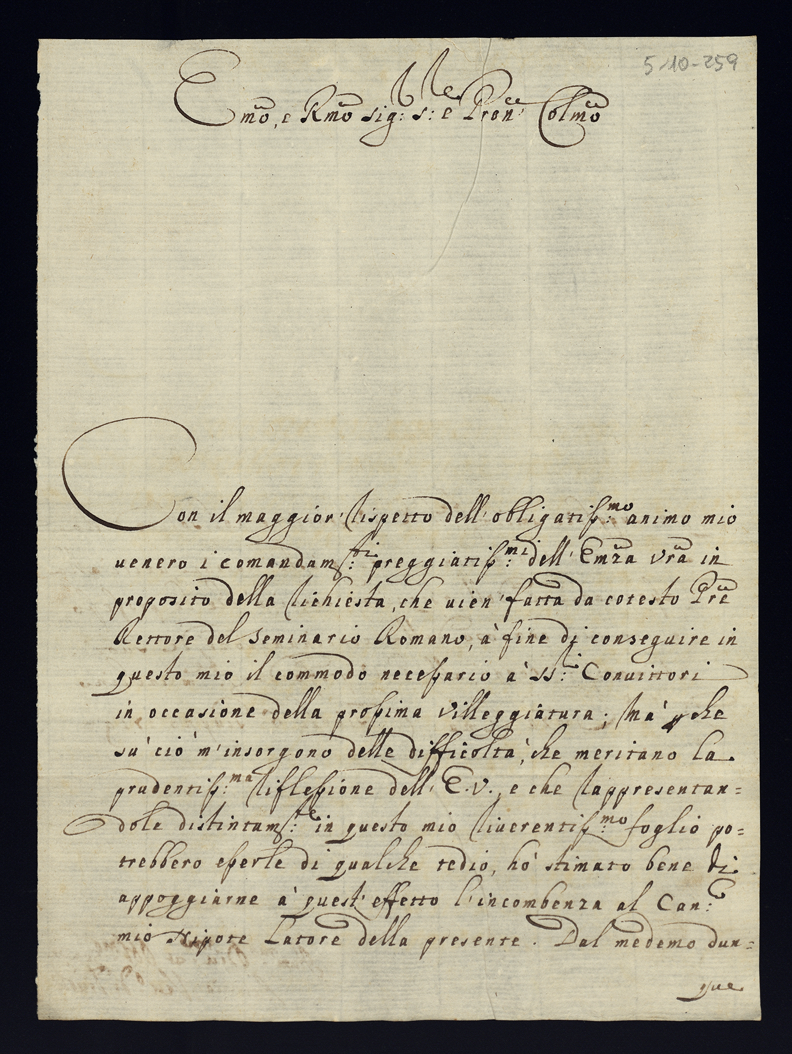 5-10-259
Em̃o, e Rm̃o Sig: S: e Pron̄e Colm̃o
Con il maggior rispetto dell'obligatiss:mo animo mio
venero i comandam:ti preggiatiss:mi dell'Em̃za Vrã in
proposito della richiesta, che vien' fatta da cotesto Prẽ
Rettore del Seminario Romano, à fine di conseguire in
questo mio il commodo necessario à SS:i Convittori
in occasione della prossima villeggiatura; Mà perche
sù ciò m'insorgono delle difficoltà, che meritano la
prudentiss:ma riflessione dell'E.V., e che rappresentan=
dole distintam:te in questo mio riverentiss:mo foglio po=
trebbero esserle di qualche tedio, hò stimato bene di
appoggiarne à quest'effetto l'incombenza al Can:co
mio Nipote Latore della presente. Dal medemo dun=
que